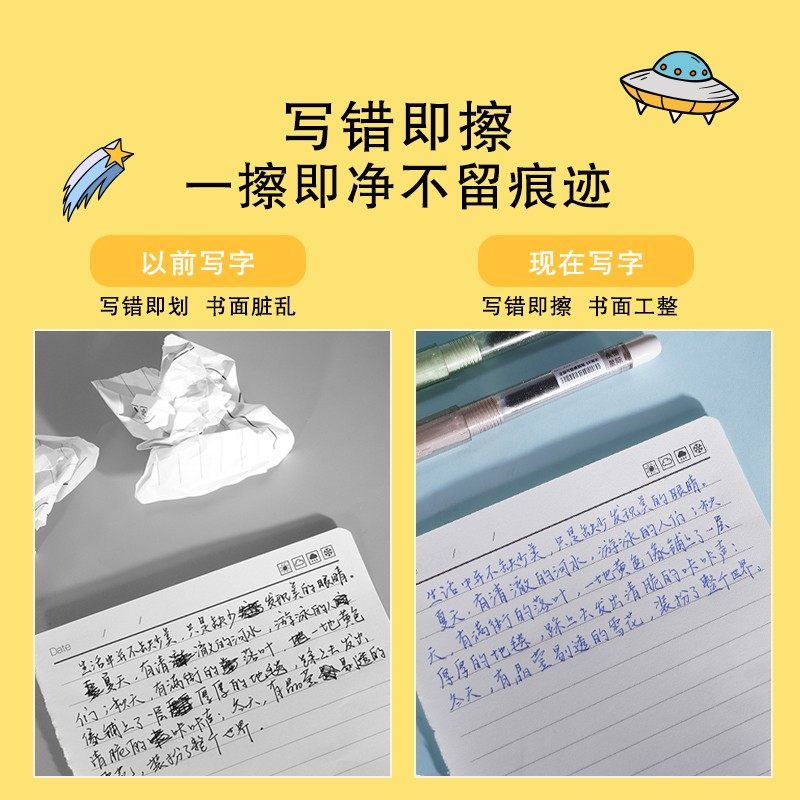 写错即擦
一擦即净不留痕迹
以前写字
现在写字
写错即划 书面脏乱
写错即擦 书面工整
Date / /
生活中并不缺少美,只是缺少发现美的眼睛。
夏天,有清澈的河水,游泳的人
们;秋天,有满街的落叶,一地黄色
像铺上了一层厚厚的地毯,踩上去发出
清脆的咔咔声;冬天,有晶莹剔透的
装扮了整个世界.
/ /
生活中并不缺少美,只是缺少发现美的眼睛。
夏天,有清澈的河水,游泳的人们;秋
天,有满街的落叶,一地黄色像铺上了一层
厚厚的地毯,踩上去发出清脆的咔咔声;
冬天,有晶莹剔透的雪花,装扮了整个世界。